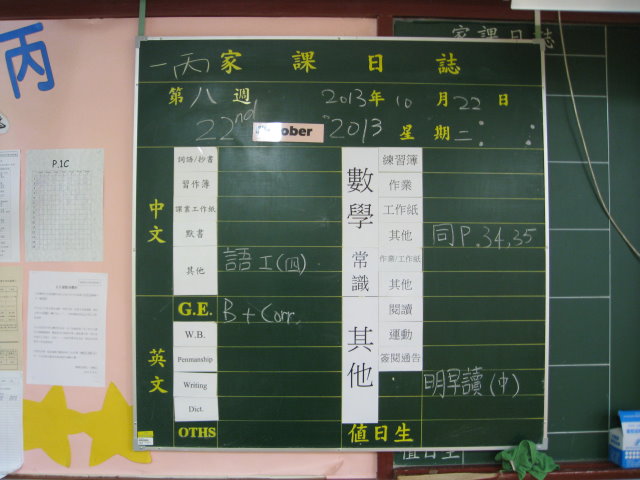 丙
家課日誌
一丙家課日誌
第八週 2013年10月22日
22nd October 2013 星期二
P.1C
中文
詞語/抄書
習作簿
課書工作紙
默書
其他 語工(四)
英文
G.E. B + Corr.
W.B.
Penmanship
Writing
Dict.
OTHS
數學
練習簿
作業
工作紙
其他 同P.34,35
常識
作業/工作紙
其他
其他
閱讀
運動
簽閱通告
明早讀(中)
值日生
值日生